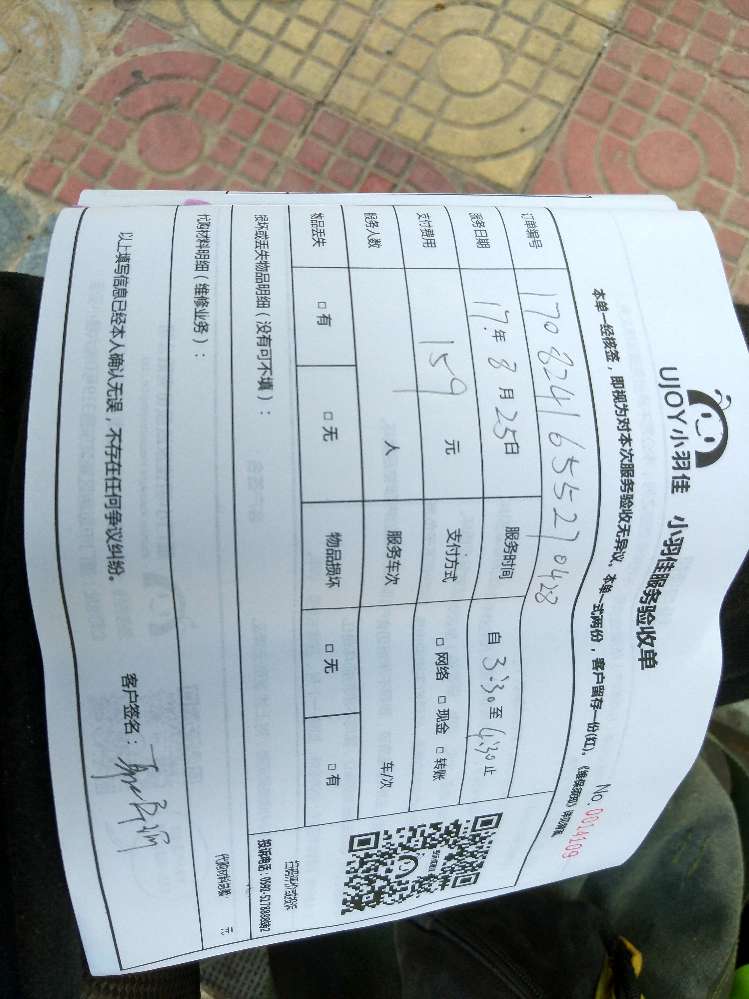 UJOY小羽佳 小羽佳服务验收单
No. 0014209
本单一经接签，即视为对本次服务验收无异议，本单一式两份，客户留存一份(红)。
订单编号 1708241655270428
服务日期 17年8月25日 服务时间 自3:30至4:30止
支付费用 159元 支付方式 □网络 □现金 □转账
服务人数 人 服务车次 车/次
物品丢失 □有 □无 物品损坏 □无 □有
损坏或丢失物品明细（没有可不填）：
扫码评价或投诉
代购材料明细（维修业务）：
元
以上填写信息已经本人确认无误，不存在任何争议纠纷。
客户签名：